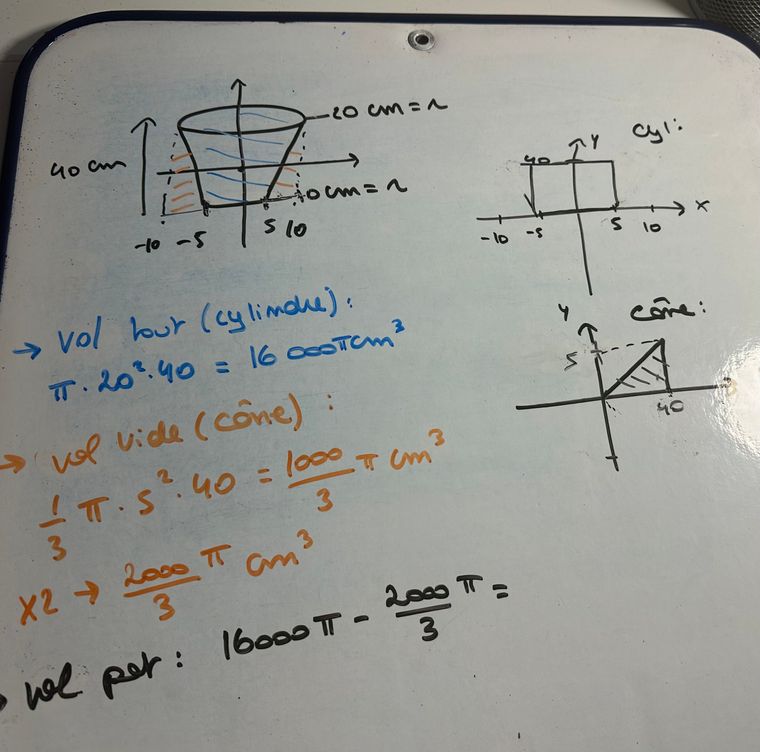 20 cm = r
40 cm
10 cm = r
-10 -5 5 10
cyl:
Y
40
X
-10 -5 5 10
cône:
Y
5
40
→ vol tout (cylindre):
π · 20² · 40 = 16 000π cm³
→ vol vide (cône):
1/3 π · 5² · 40 = 1000/3 π cm³
x2 → 2000/3 π cm³
vol pot: 16000π - 2000/3 π =